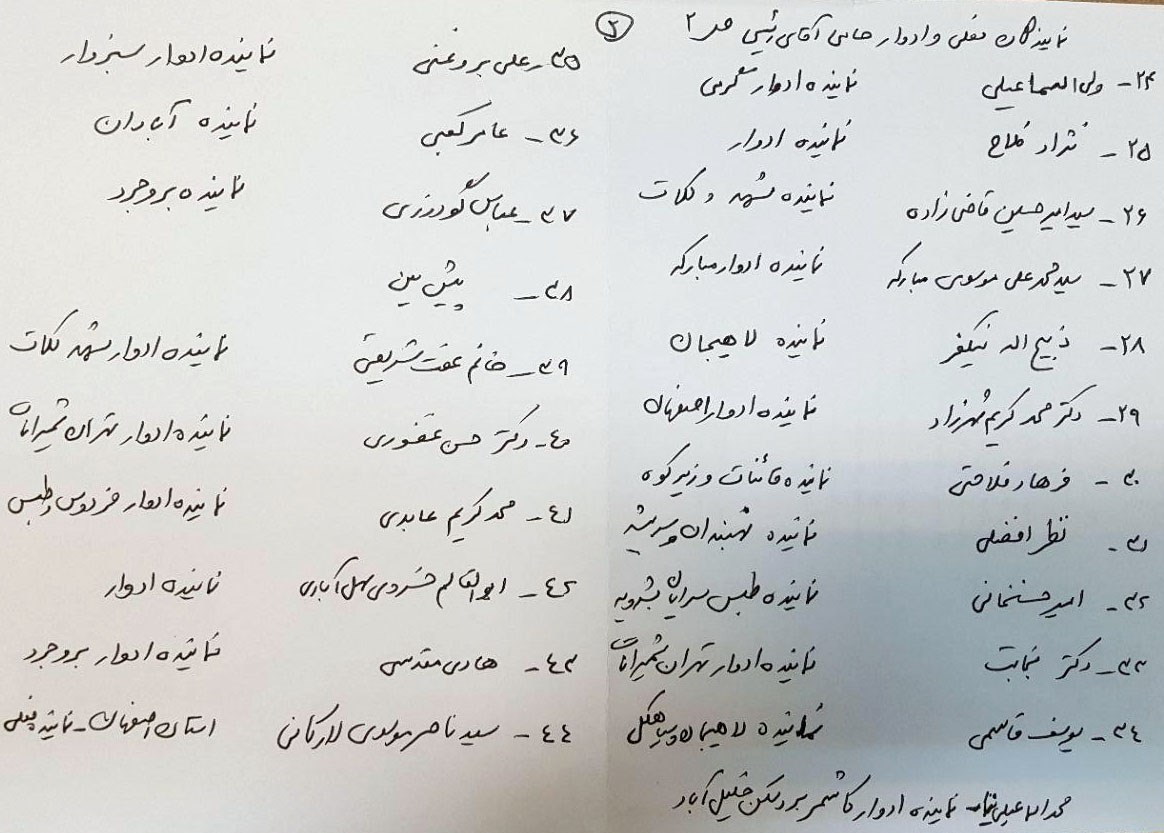 نمایندگان فعلی و ادوار حامی آقای رئیسی ص ۲
②
۲۴- ولی اسماعیلی نماینده ادوار گرمی
۲۵- نژاد فلاح نماینده ادوار
۲۶- سید امیرحسین قاضی زاده نماینده مشهد و کلات
۲۷- سید محمد علی موسوی مبارکه نماینده ادوار مبارکه
۲۸- ذبیح اله نیکفر نماینده لاهیجان
۲۹- دکتر محمد کریم شهرزاد نماینده ادوار اصفهان
۳۰- فرهاد فلاحتی نماینده قائنات و زیرکوه
۳۱- نظر افضلی نماینده نهبندان و سربیشه
۳۲- امیر حسنخانی نماینده طبس سرایان بشرویه
۳۳- دکتر نجابت نماینده ادوار تهران شمیرانات
۳۴- یوسف قاسمی نماینده لاهیجان و سیاهکل
محمد اسماعیل‌نیا- نماینده ادوار کاشمر بردسکن خلیل آباد
۳۵- علی بروغنی نماینده ادوار سبزوار
۳۶- عامر کعبی نماینده آبادان
۳۷- عباس گودرزی نماینده بروجرد
۳۸- پیش بین
۳۹- خانم عفت شریعتی نماینده ادوار مشهد کلات
٤٠- دکتر حسن غفوری نماینده ادوار تهران شمیرانات
٤۱- محمد کریم عابدی نماینده ادوار فردوس و طبس
٤۲- ابوالقاسم خسروی سهل آبادی نماینده ادوار
٤۳- هادی مقدسی نماینده ادوار بروجرد
٤٤- سید ناصر موسوی لارگانی استان اصفهان- نماینده فعلی